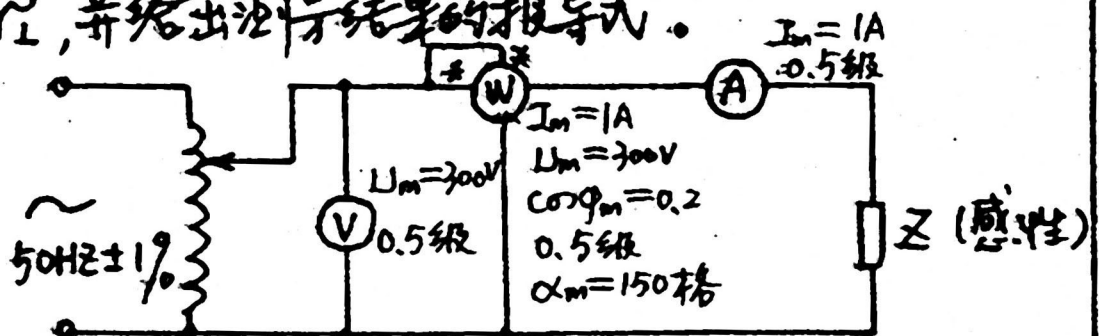 ,并给出测量结果的报导式。
Im=1A
0.5级
*
*
W
A
Im=1A
Um=300V
cosφm=0.2
0.5级
αm=150格
Um=300V
V
0.5级
~
50HZ±1%
Z (感性)